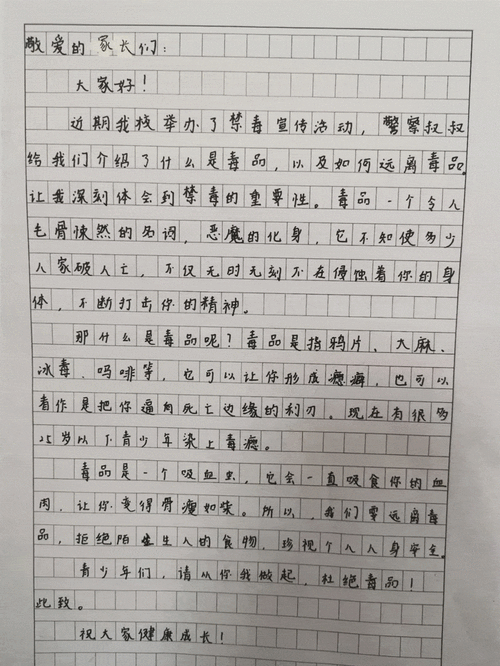 敬爱的家长们：
大家好！
近期我校举办了禁毒宣传活动，警察叔叔
给我们介绍了什么是毒品，以及如何远离毒品。
让我深刻体会到禁毒的重要性。毒品一个令人
毛骨悚然的名词，恶魔的化身，它不知使多少
人家破人亡，不仅无时无刻不在侵蚀着你的身
体，不断打击你的精神。
那什么是毒品呢？毒品是指鸦片、大麻、
冰毒、吗啡等，它可以让你形成瘾癖，也可以
看作是把你逼向死亡边缘的利刃。现在有很多
25岁以下青少年染上毒瘾。
毒品是一个吸血虫，它会一直吸食你的血
肉，让你变得骨瘦如柴。所以，我们要远离毒
品，拒绝陌生生人的食物，珍视个人人身安全。
青少年们，请从你我做起，杜绝毒品！
此致。
祝大家健康成长！